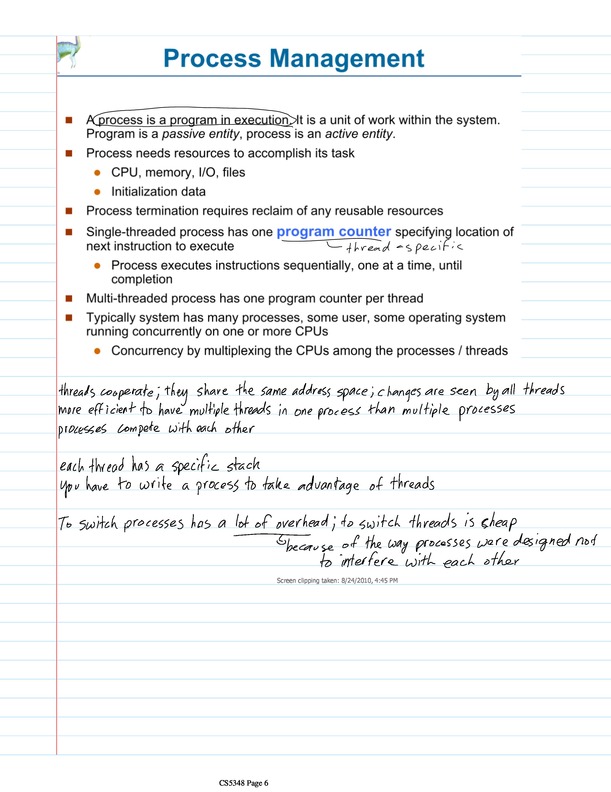 Process Management
A process is a program in execution. It is a unit of work within the system.
Program is a passive entity, process is an active entity.
Process needs resources to accomplish its task
CPU, memory, I/O, files
Initialization data
Process termination requires reclaim of any reusable resources
Single-threaded process has one program counter specifying location of
next instruction to execute
thread-specific
Process executes instructions sequentially, one at a time, until
completion
Multi-threaded process has one program counter per thread
Typically system has many processes, some user, some operating system
running concurrently on one or more CPUs
Concurrency by multiplexing the CPUs among the processes / threads
threads cooperate; they share the same address space; changes are seen by all threads
more efficient to have multiple threads in one process than multiple processes
processes compete with each other
each thread has a specific stack
you have to write a process to take advantage of threads
To switch processes has a lot of overhead; to switch threads is cheap
because of the way processes were designed not
to interfere with each other
Screen clipping taken: 8/24/2010, 4:45 PM
CS5348 Page 6